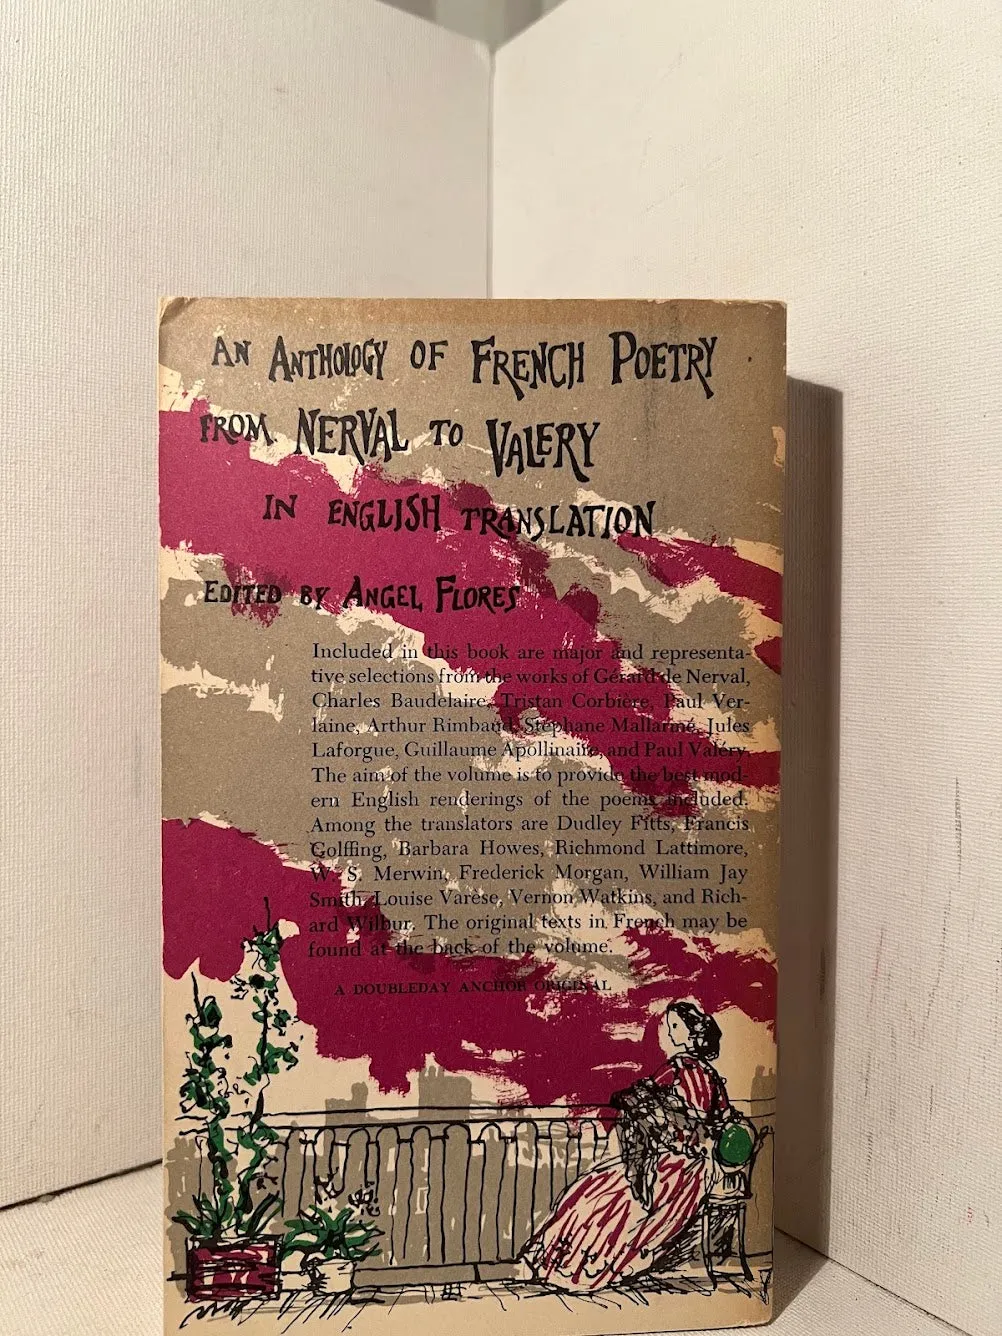 AN ANTHOLOGY OF FRENCH POETRY
FROM NERVAL TO VALERY
IN ENGLISH TRANSLATION
EDITED BY ANGEL FLORES
Included in this book are major and representa-
tive selections from the works of Gérard de Nerval,
Charles Baudelaire, Tristan Corbière, Paul Ver-
laine, Arthur Rimbaud, Stéphane Mallarmé, Jules
Laforgue, Guillaume Apollinaire, and Paul Valéry.
The aim of the volume is to provide the best mod-
ern English renderings of the poems included.
Among the translators are Dudley Fitts, Francis
Golffing, Barbara Howes, Richmond Lattimore,
W. S. Merwin, Frederick Morgan, William Jay
Smith, Louise Varèse, Vernon Watkins, and Rich-
ard Wilbur. The original texts in French may be
found at the back of the volume.
A DOUBLEDAY ANCHOR ORIGINAL